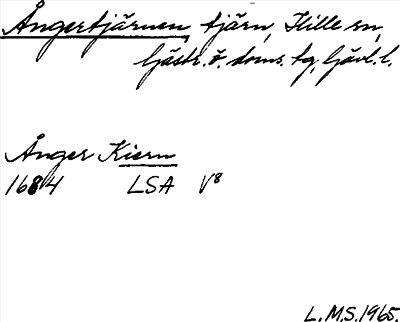 Ångertjärnen, tjärn, Hille sn,
Gästr. ö. doms. tg, Gävl. l.
Ånger Kiern
1684 LSA V⁸
L.M.S.1965.